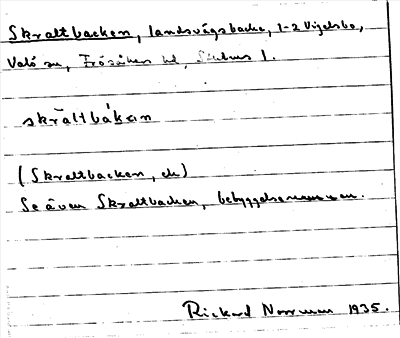 Skrattbacken, landsvägsbacke, 1-2 Vigelsbo,
Valö sn, Frösåkers hd, 1.
skràltbákan
(Skrattbacken, ch)
Se även Skrattbacken, bebyggelsenamnen.
Rickard Norrman 1935.